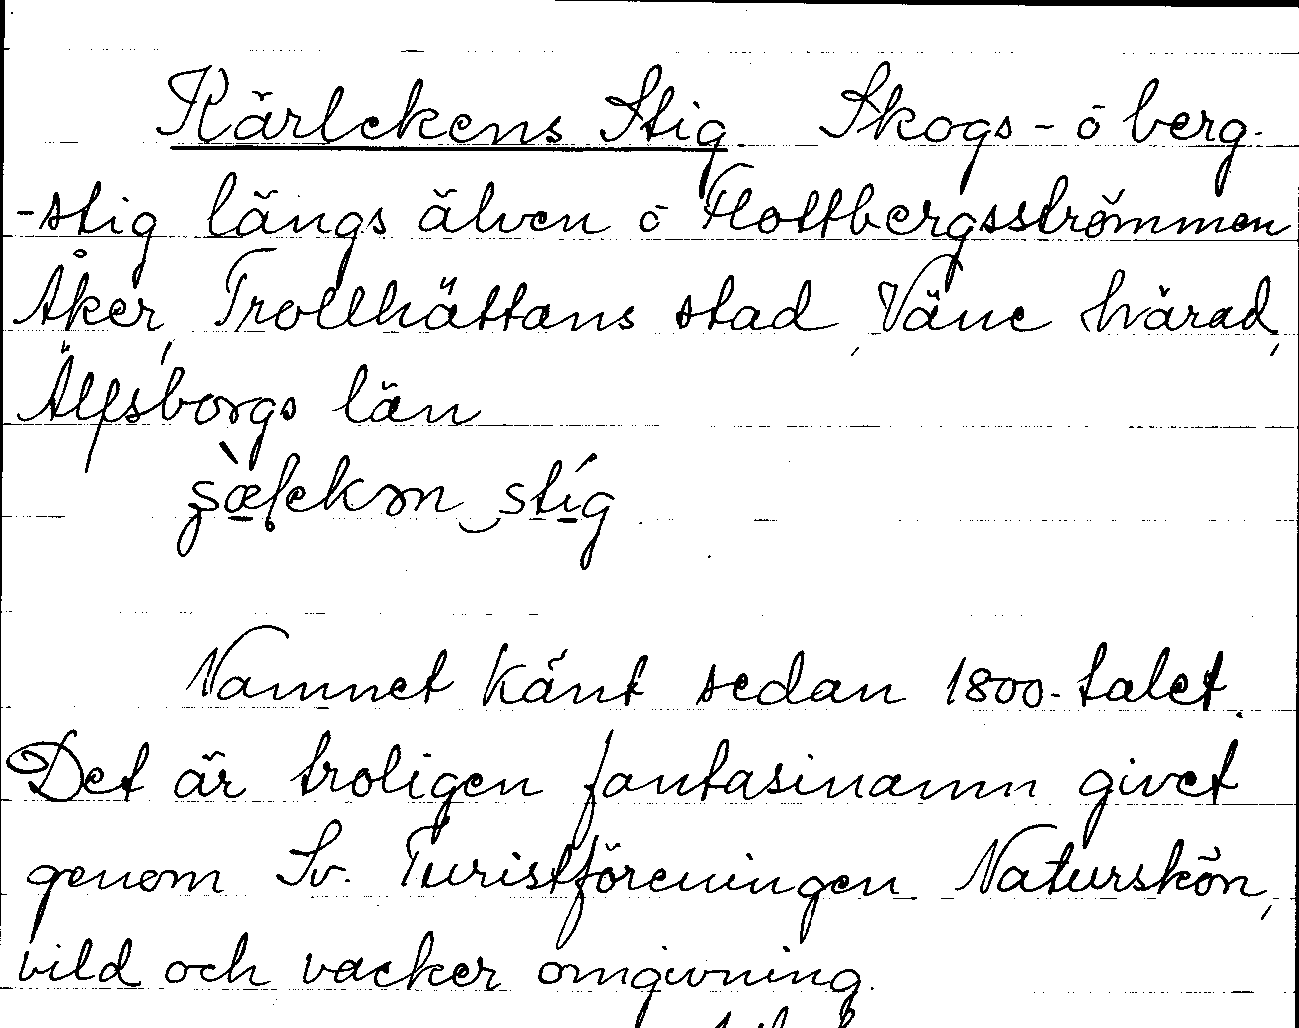 Kärlekens Stig. Skogs- ō berg-
-stig längs älven ō Flottbergsströmmen
Åker, Trollhättans stad, Väne härad,
Älfsborgs län
Namnet känt sedan 1800-talet.
Det är troligen fantasinamn givet
genom Sv. Turistföreningen. Naturskön,
vild och vacker omgivning.